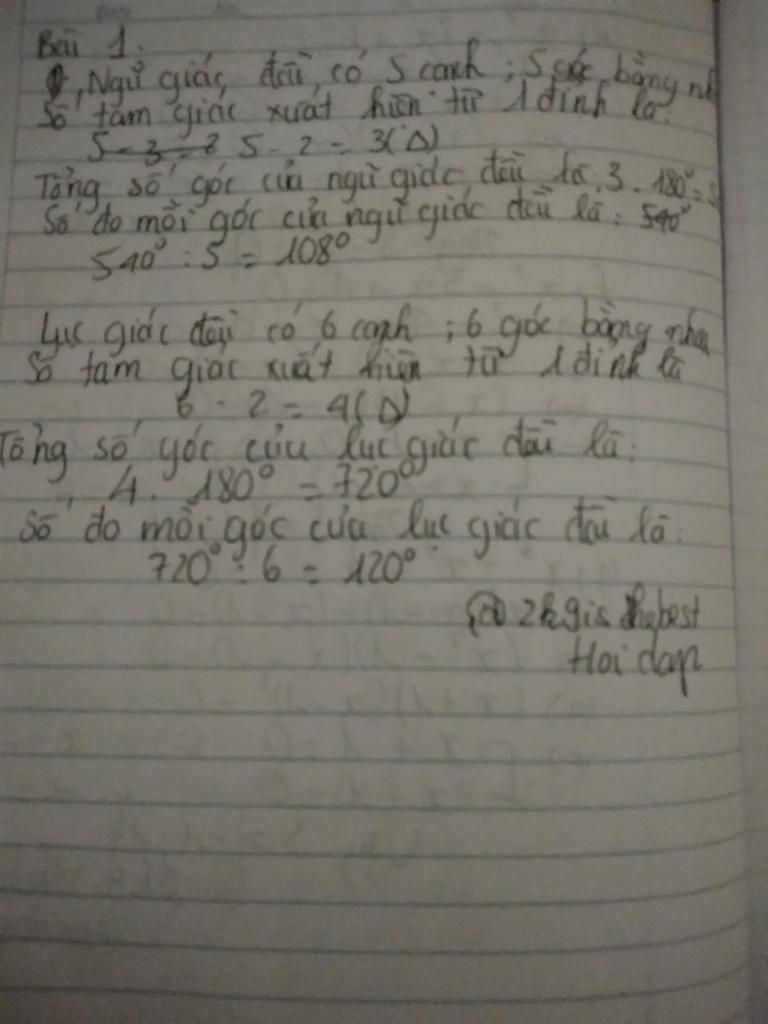 Bài 1.
Ngũ giác đều có 5 cạnh ; 5 góc bằng nh
Số tam giác xuất hiện từ 1 đỉnh là:
5 - 3 = 3 5 - 2 = 3(Δ)
Tổng số góc của ngũ giác đều là 3 . 180° =
Số đo mỗi góc của ngũ giác đều là : 540°
540° : 5 = 108°
Lục giác đều có 6 cạnh ; 6 góc bằng nhau
Số tam giác xuất hiện từ 1 đỉnh là
6 - 2 = 4(Δ)
Tổng số góc của lục giác đều là:
4 . 180° = 720°
Số đo mỗi góc của lục giác đều là:
720° : 6 = 120°
@ 2k9is thebest
Hoi dap